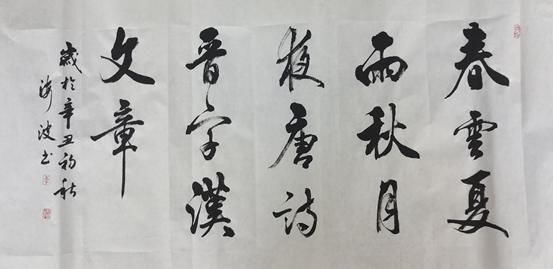 春雲夏
雨秋月
夜唐詩
晉字漢
文章
歲於辛丑初秋
海波书